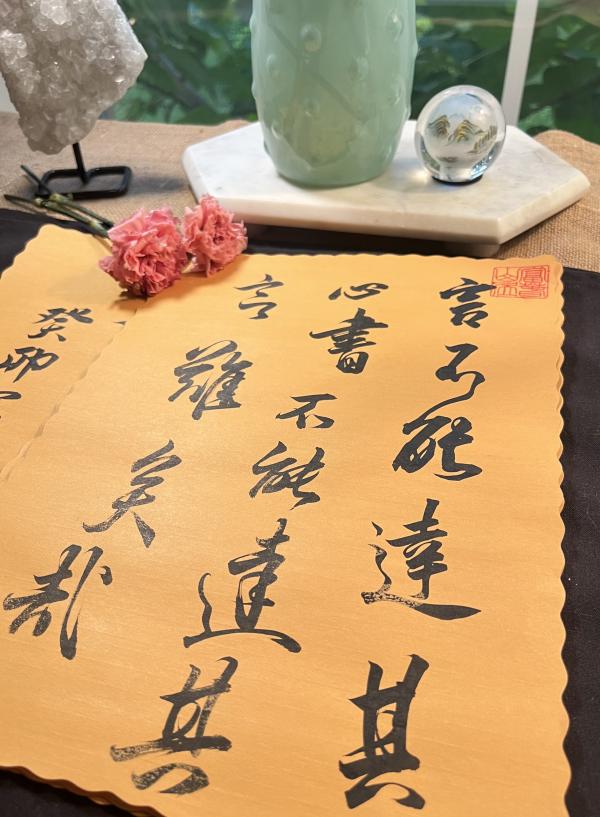 言不能達其
心書不能達其
言難矣哉
癸卯